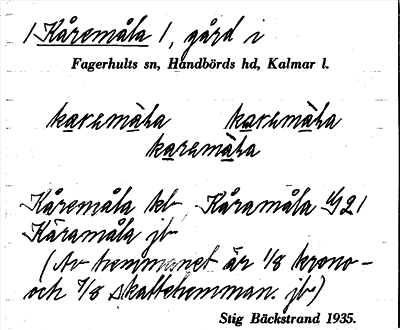 1 Kåremåla 1, gård i
Fagerhults sn, Handbörds hd, Kalmar l.
karamåla karamåla
karamåla
Kåremåla kb Kåramåla G21
Käramåla jb
(Av hemmanet är 1/8 krono-
och 7/8 skattehemman. jb)
Stig Bäckstrand 1935.